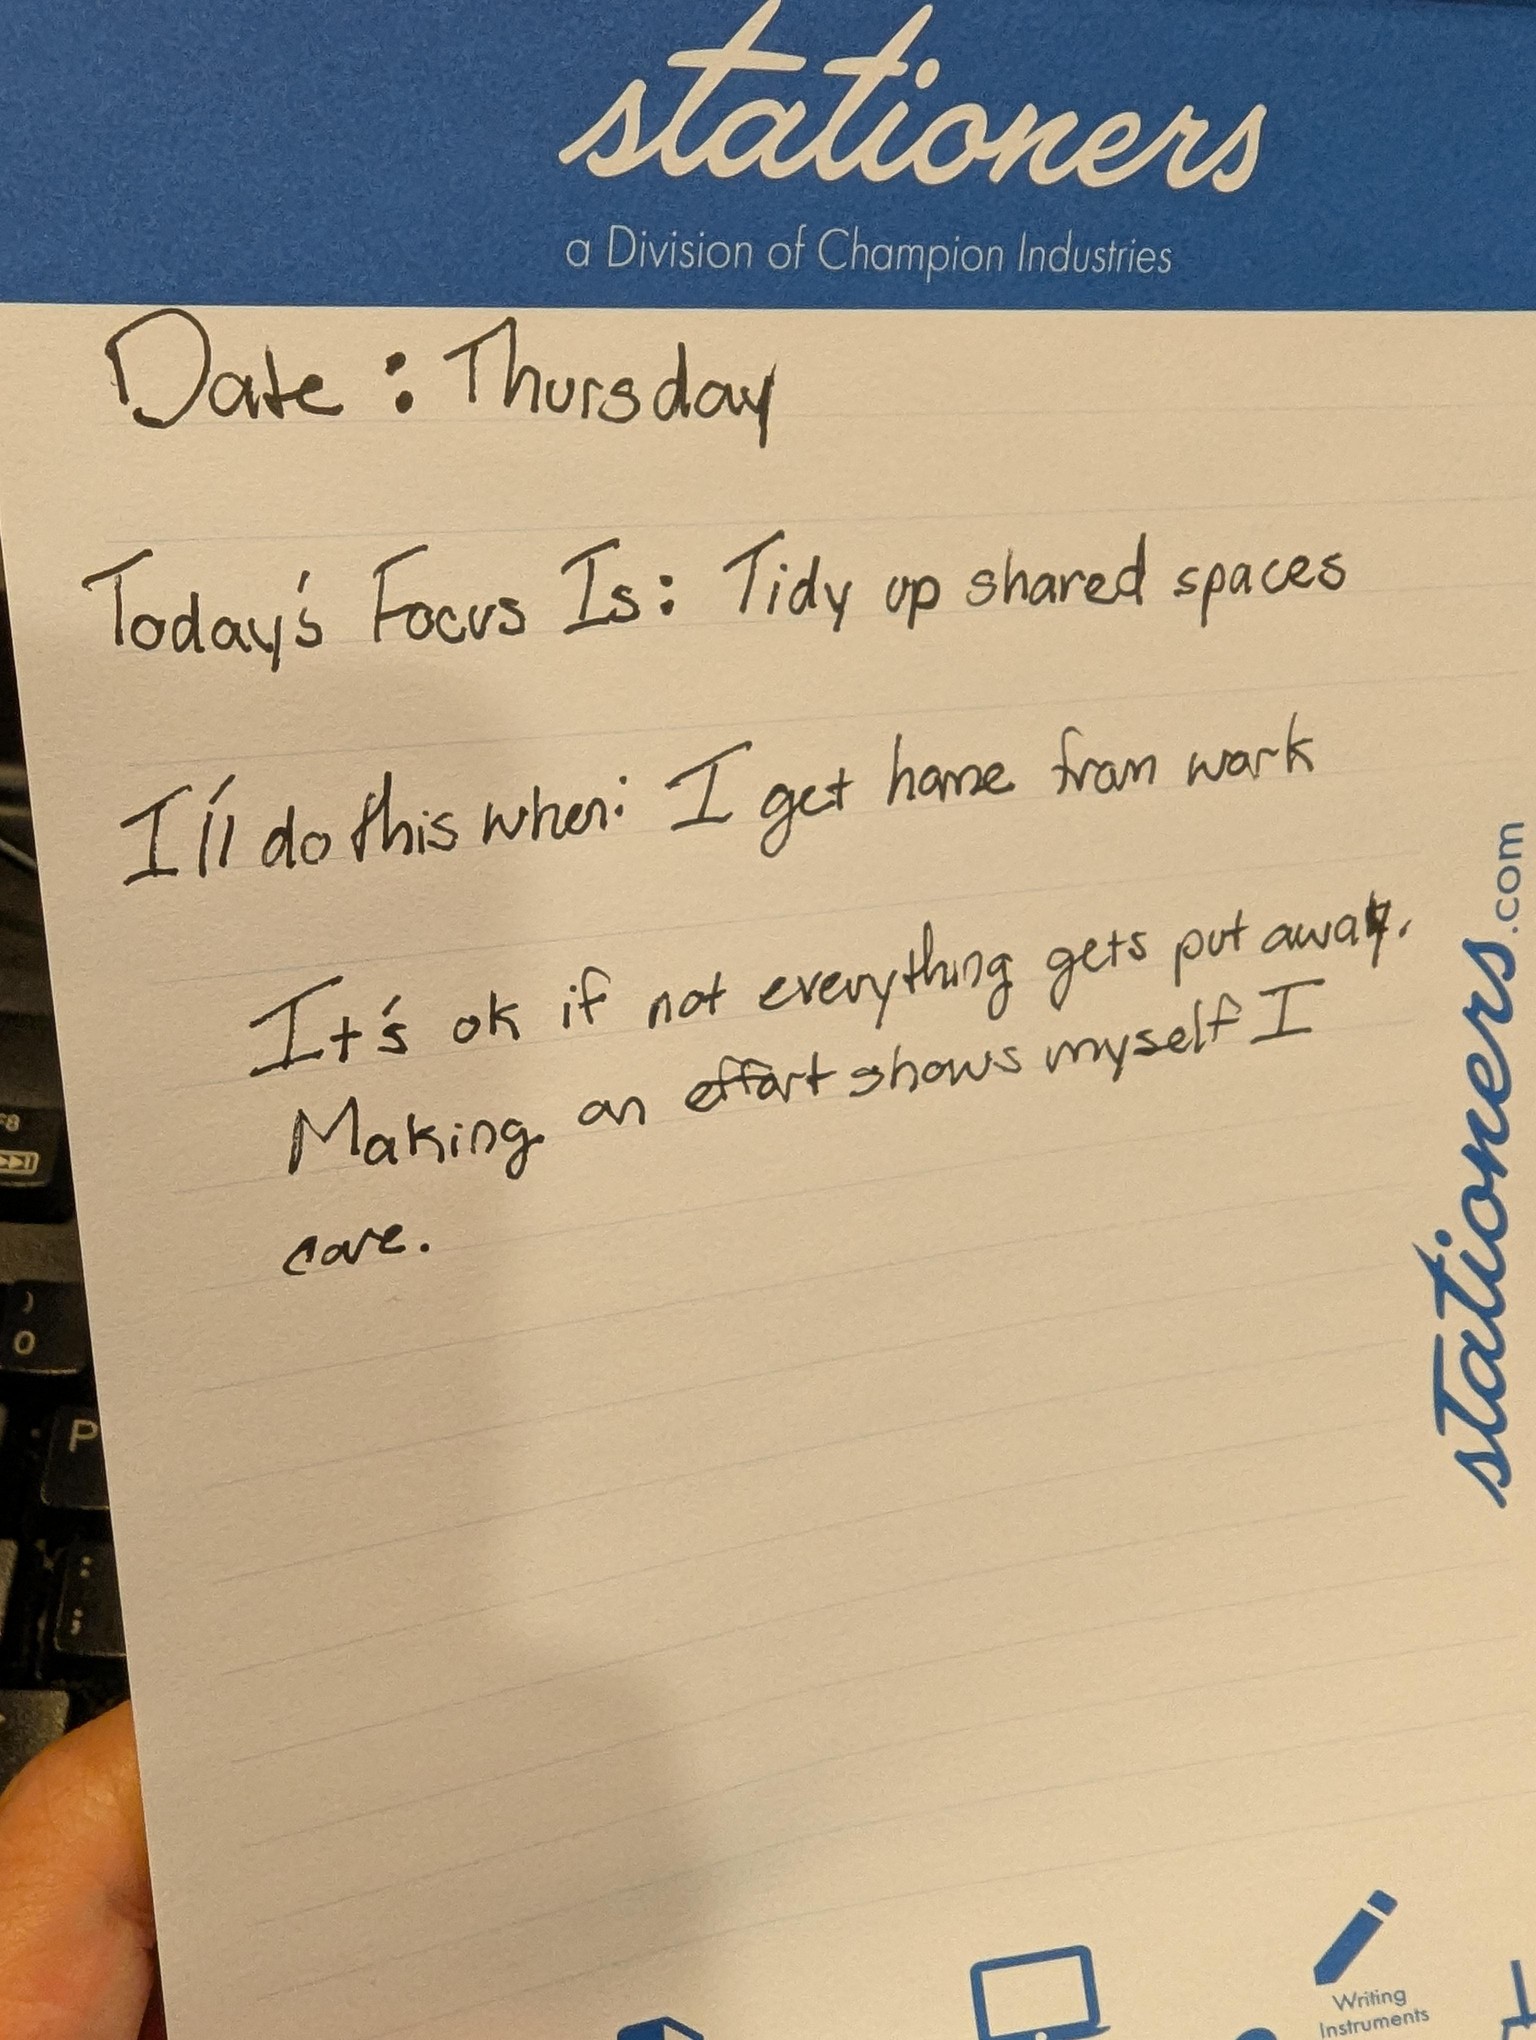 stationers
a Division of Champion Industries
Date: Thursday
Today's Focus Is: Tidy up shared spaces
I'll do this when: I get home from work
It's ok if not everything gets put away.
Making an effort shows myself I
care.
stationers.com
F8
)
0
P
:
;
Writing
Instruments